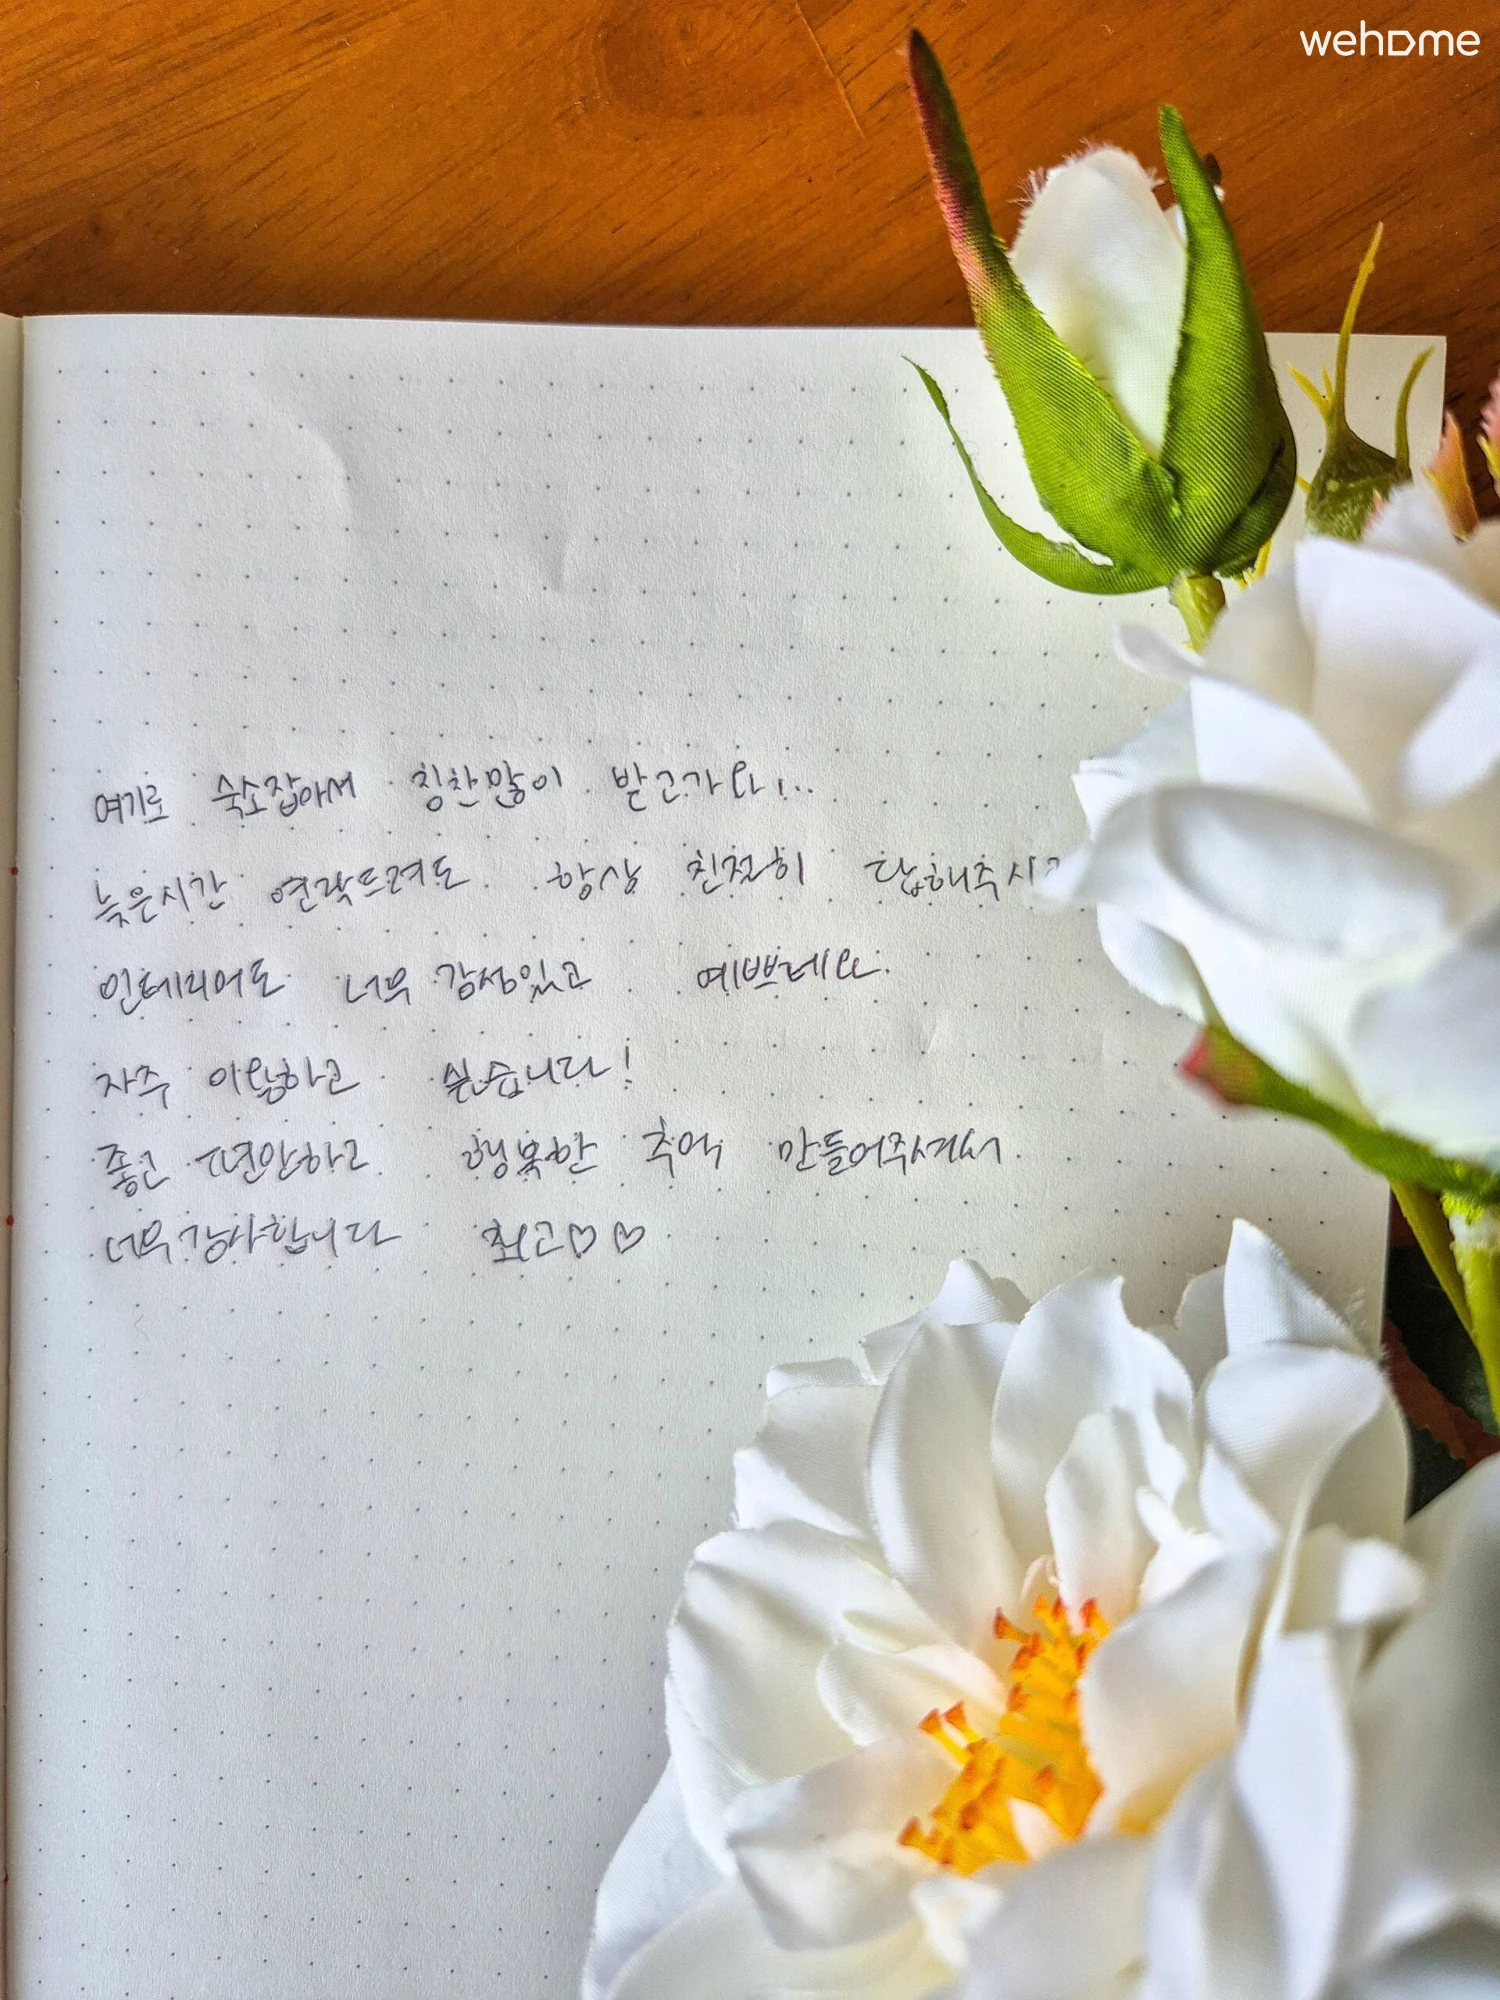 wehome
여기로 숙소잡아서 칭찬많이 받고가요!..
늦은시간 연락드려도 항상 친절히 답해주시고
인테리어도 너무 감성있고 예쁘네요.
자주 이용하고 싶습니다!
좋고 편안하고 행복한 추억 만들어주셔서
너무감사합니다 최고♡♡